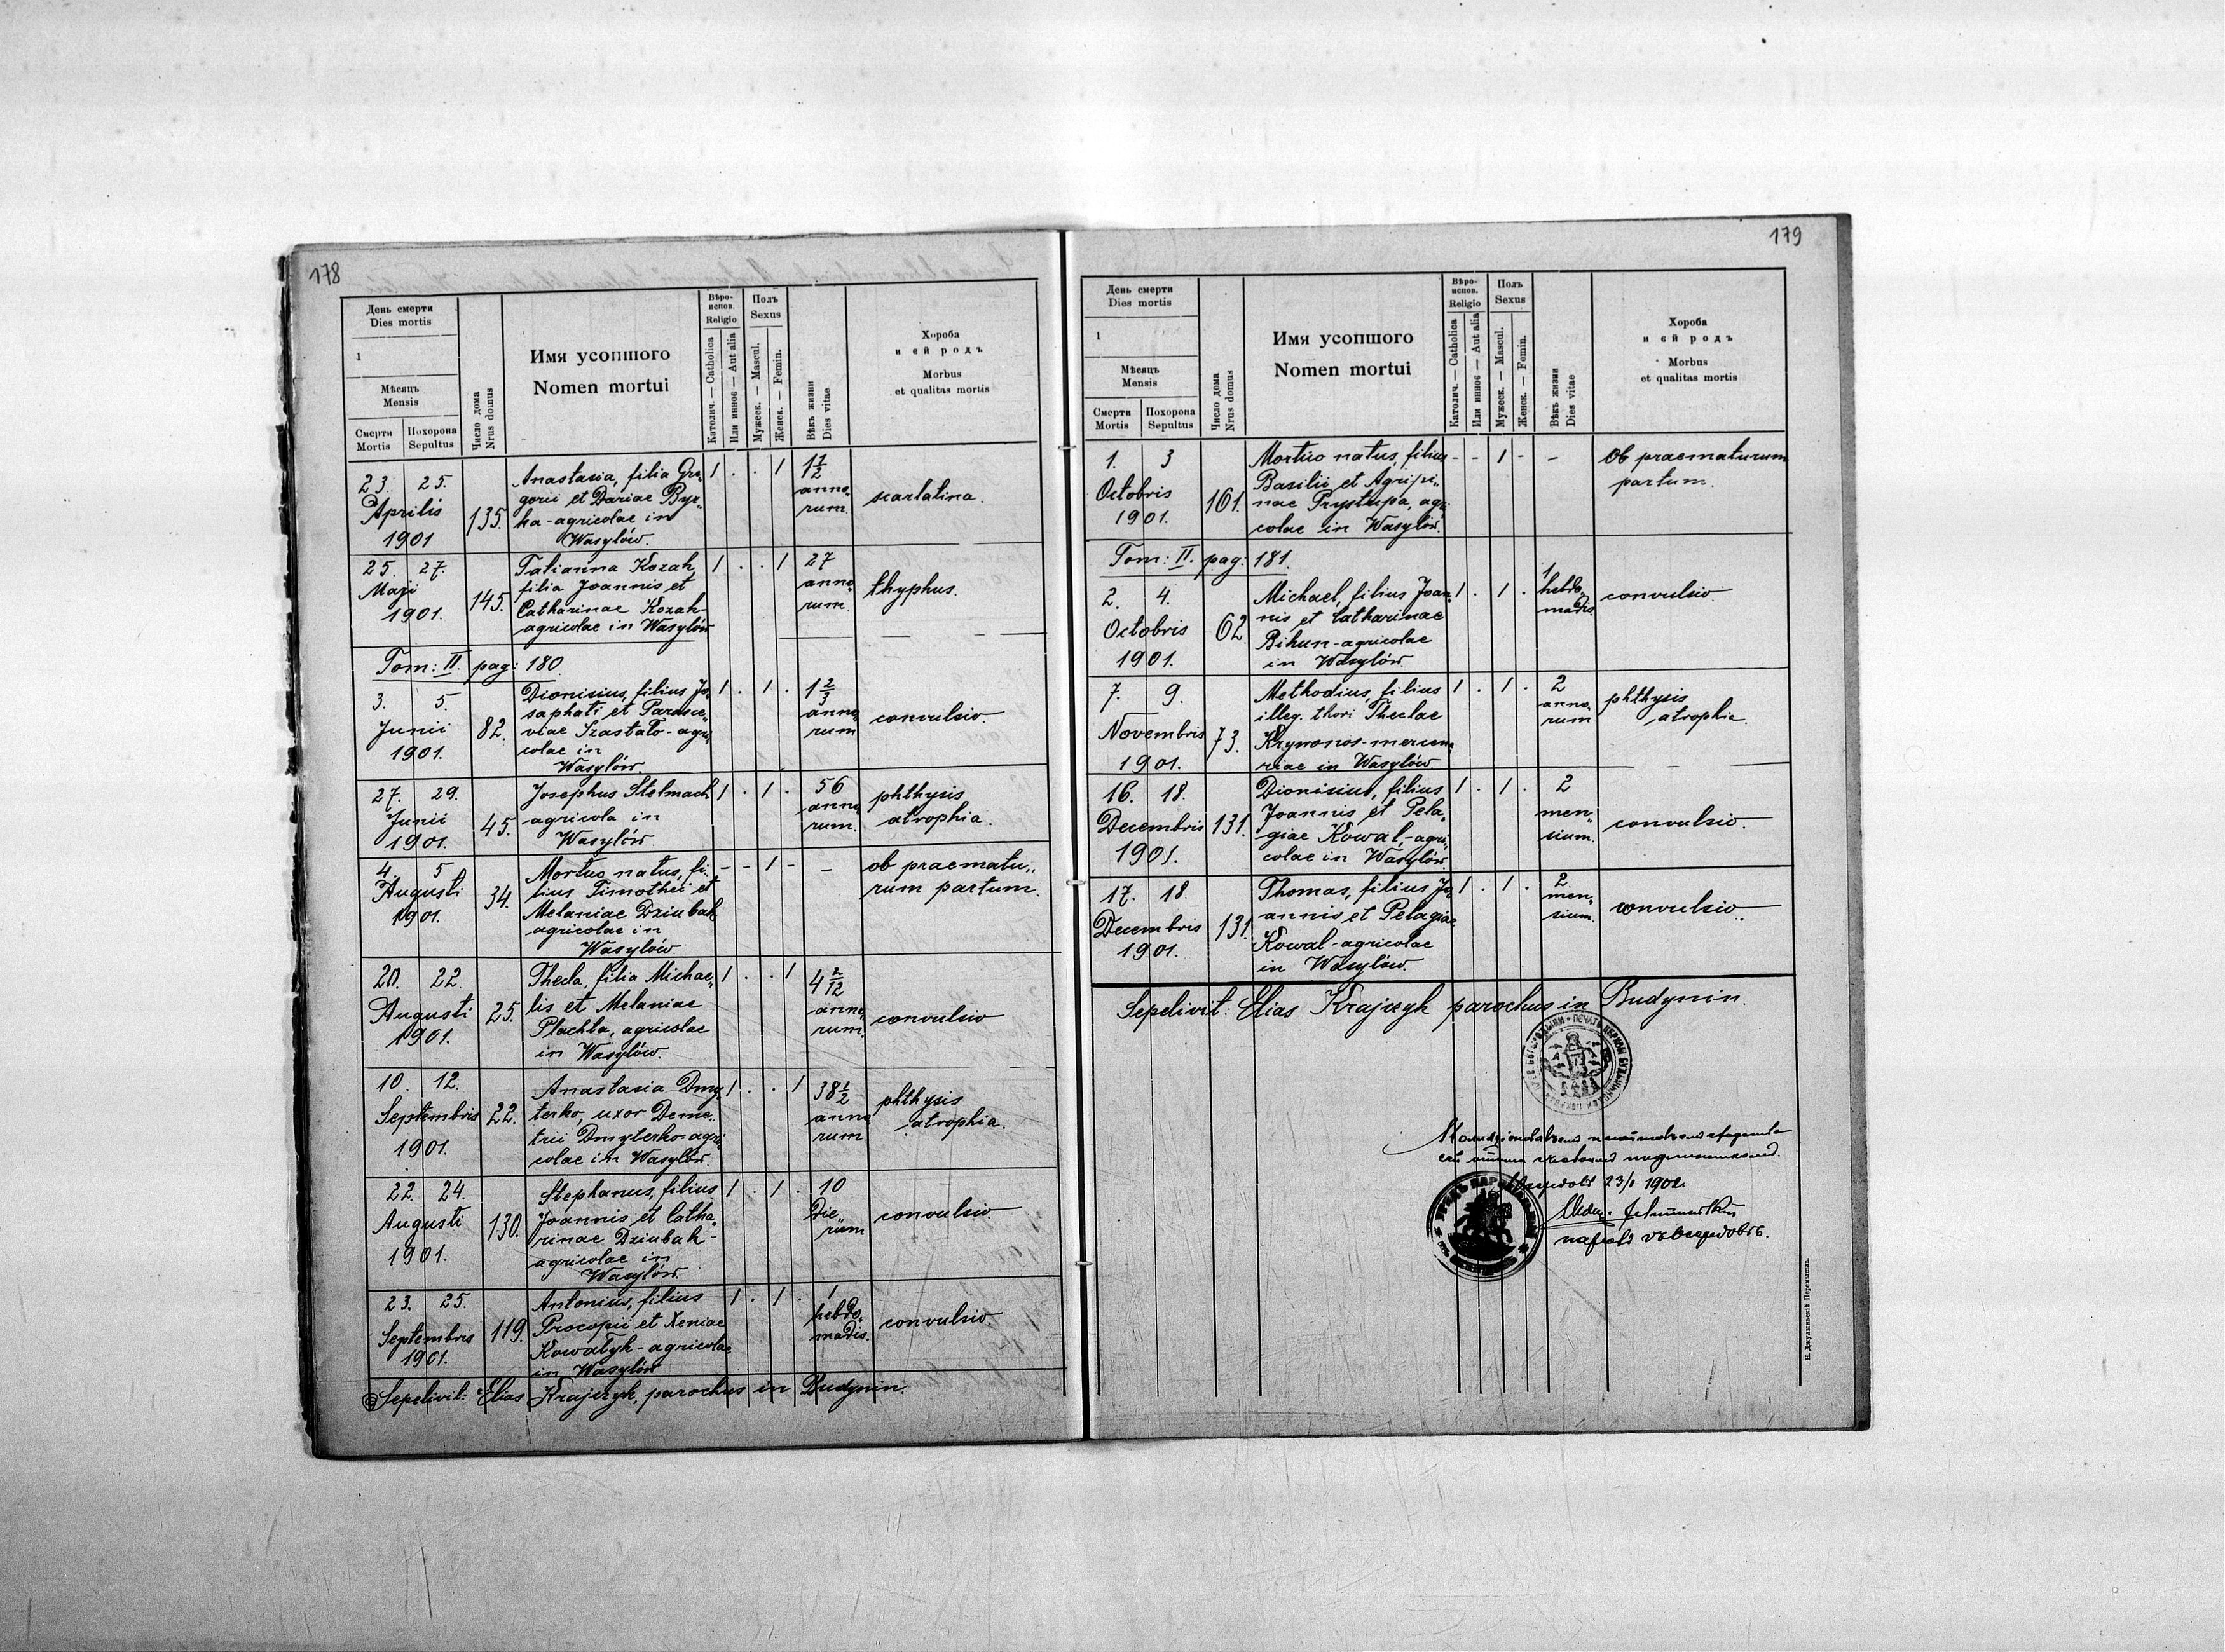 178
День смерти
Dies mortis
1
Мѣсяцъ
Mensis
Смерти
Mortis
Похорона
Sepultus
Число дома
Nrus domus
Имя усопшого
Nomen mortui
Вѣро-
испов.
Religio
Католич. — Catholica
Или инное — Aut alia
Полъ
Sexus
Мужеск. — Mascul.
Женск. — Femin.
Вѣкъ жизни
Dies vitae
Хороба
и ей родъ
Morbus
et qualitas mortis
23. 25.
Aprilis
1901
135.
Anastasia, filia Gre
gorii et Dariae Byr„
ha - agricolae in
Wasylów.
1 . . 1
1 1/2
anno„
rum.
scarlatina.
25. 27.
Maji
1901.
145.
Tatianna Kozak
filia Joannis et
Catharinae Kozak-
agricolae in Wasylów
1 . . 1
27
anno„
rum.
thyphus.
Tom: II. pag: 180
3. 5.
Junii
1901.
82.
Dionisius, filius Jo„
saphati et Parasce„
viae Szastało - agri„
colae in
Wasylów.
1 . 1 .
1 2/3
anno„
rum
convulsio.
27. 29.
Junii
1901.
45.
Josephus Stelmach
agricola in
Wasylów.
1 . 1 .
56
anno„
rum.
phthysis
atrophia.
4. 5
Augusti
1901.
34.
Mortuo natus, fi„
lius Timothei et
Melaniae Dziubak
agricolae in
Wasylów.
- - 1 -
-
ob praematu„
rum partum.
20. 22.
Augusti
1901.
25.
Thecla, filia Michae„
lis et Melaniae
Plachta, agricolae
in Wasylów.
1 . . 1
4 2/12
anno„
rum.
convulsio
10. 12.
Septembris
1901.
22.
Anastasia Dmy„
terko, uxor Deme„
trii Dmyterko - agri„
colae in Wasylów.
1 . . 1
38 1/2
anno
rum
phthysis
atrophia.
22. 24.
Augusti
1901.
130.
Stephanus, filius
Joannis et Catha„
rinae Dziubak -
agricolae in
Wasylów.
1 . 1 .
10
Die„
rum
convulsio.
23. 25.
Septembris
1901.
119.
Antonius, filius
Procopii et Xeniae
Kowałyk - agricolae
in Wasylów
1 . 1 .
1
hebdo„
madis.
convulsio.
Sepelivit: Elias Krajczyk, parochus in Budynin.
179
День смерти
Dies mortis
1
Мѣсяцъ
Mensis
Смерти
Mortis
Похорона
Sepultus
Число дома
Nrus domus
Имя усопшого
Nomen mortui
Вѣро-
испов.
Religio
Католич. — Catholica
Или инное — Aut alia
Полъ
Sexus
Мужеск. — Mascul.
Женск. — Femin.
Вѣкъ жизни
Dies vitae
Хороба
и ей родъ
Morbus
et qualitas mortis
1. 3
Octobris
1901.
161.
Mortuo natus, filius
Basilii et Agripi„
nae Prystupa, agri
colae in Wasylów.
- - 1 -
-
Ob praematurum
partum.
Tom: II. pag: 181.
2. 4.
Octobris
1901.
62.
Michael, filius Joan„
nis et Catharinae
Bihun - agricolae
in Wasylów.
1 . 1 .
1
hebdo„
madis.
convulsio.
7. 9.
Novembris
1901.
73.
Methodius, filius
illeg. thori Theclae
Krywonos - mercen„
riae in Wasylów
1 . 1 .
2
anno„
rum
phthysis
atrophia.
16. 18.
Decembris
1901.
131.
Dionisius, filius
Joannis et Pela„
giae Kowal, - agri„
colae in Wasylów.
1 . 1 .
2
men„
sium.
convulsio.
17. 18.
Decembris
1901.
131.
Thomas, filius Jo„
annis et Pelagiae
Kowal - agricolae
in Wasylów.
1 . 1 .
2.
men„
sium.
convulsio.
Sepelivit: Elias Krajczyk parochus in Budynin.
23/1 1902
Н. Джулыньскій Перемышль